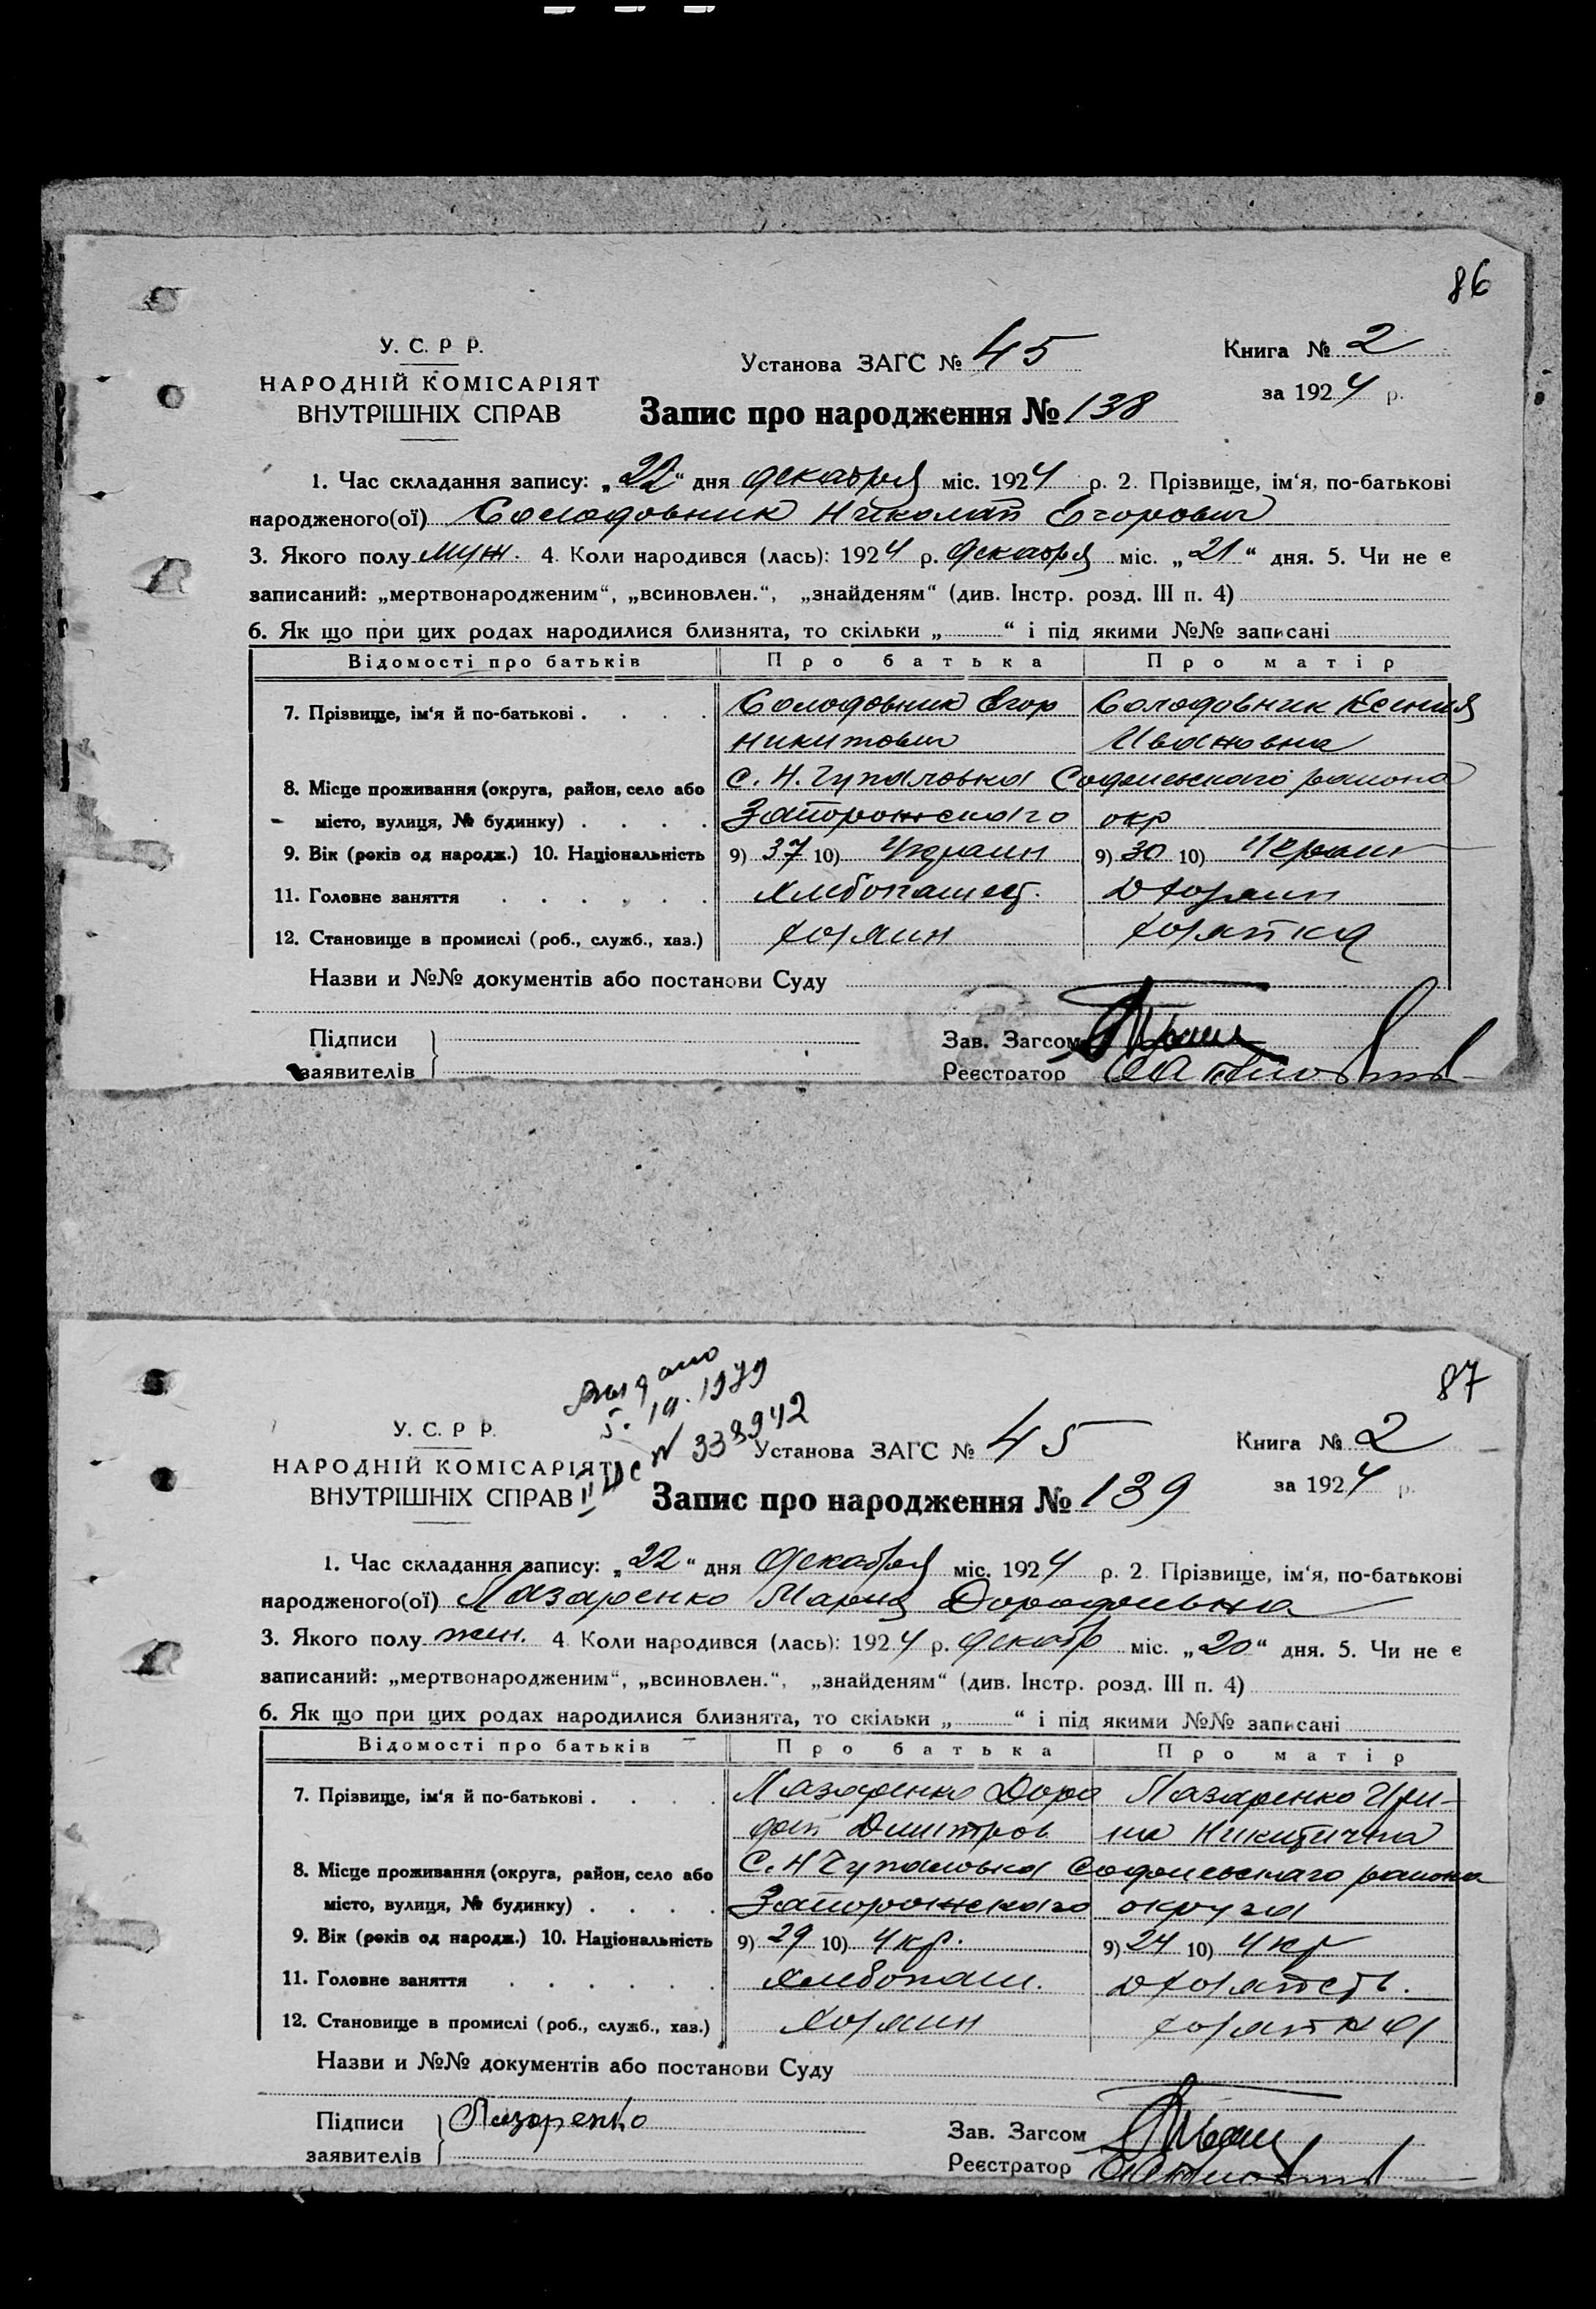 86
У. С. Р Р.
НАРОДНІЙ КОМІСАРІЯТ
ВНУТРІШНІХ СПРАВ
Установа ЗАГС № 45
Книга № 2
за 1924 р.
Запис про народження № 138
1. Час складання запису: „22“ дня декабря міс. 1924 р. 2. Прізвище, ім‘я, по-батькові
народженого(ої) Солодовник Николай Егорович
3. Якого полу муж. 4. Коли народився (лась): 1924 р. декабря міс. „21“ дня. 5. Чи не є
записаний: „мертвонародженим“, „всиновлен.“, „знайденям“ (див. Інстр. розд. III п. 4)
6. Як що при цих родах народилися близнята, то скільки „ “ і під якими №№ записані
Відомості про батьків Про батька Про матір
7. Прізвище, ім‘я й по-батькові . . . . Солодовник Егор Солодовник Ксения
Никитович Ивановна
8. Місце проживання (округа, район, село або С. Н. Гупаловка Софиевского района
місто, вулиця, № будинку) . . . . Запорожского окр
9. Вік (років од народж.) 10. Національність 9) 37 10) Украин 9) 30 10) Украин
11. Головне заняття . . . . . . Хлебопашец.
12. Становище в промислі (роб., служб., хаз.) хозяин хозяйка
Назви и №№ документів або постанови Суду
Підписи
заявителів
Зав. Загсом
Реєстратор
87
Выдано
5. 10. 1979
№ 338942
У. С. Р Р.
НАРОДНІЙ КОМІСАРІЯТ
ВНУТРІШНІХ СПРАВ
Установа ЗАГС № 45
Книга № 2
за 1924 р.
Запис про народження № 139
1. Час складання запису: „22“ дня декабря міс. 1924 р. 2. Прізвище, ім‘я, по-батькові
народженого(ої) Лазаренко Мария Дорофеевна
3. Якого полу жен. 4. Коли народився (лась): 1924 р. декабр міс. „20“ дня. 5. Чи не є
записаний: „мертвонародженим“, „всиновлен.“, „знайденям“ (див. Інстр. розд. III п. 4)
6. Як що при цих родах народилися близнята, то скільки „ “ і під якими №№ записані
Відомості про батьків Про батька Про матір
7. Прізвище, ім‘я й по-батькові . . . . Лазаренко Доро Лазаренко Ири-
фей Дмитров на Никитична
8. Місце проживання (округа, район, село або С. Н Гупаловка Софиевскаго района
місто, вулиця, № будинку) . . . . Запорожскаго округа
9. Вік (років од народж.) 10. Національність 9) 29 10) Укр. 9) 24 10) Укр
11. Головне заняття . . . . . . Хлебопаш.
12. Становище в промислі (роб., служб., хаз.) Хозяин хозяйка
Назви и №№ документів або постанови Суду
Підписи Лазаренко
заявителів
Зав. Загсом
Реєстратор